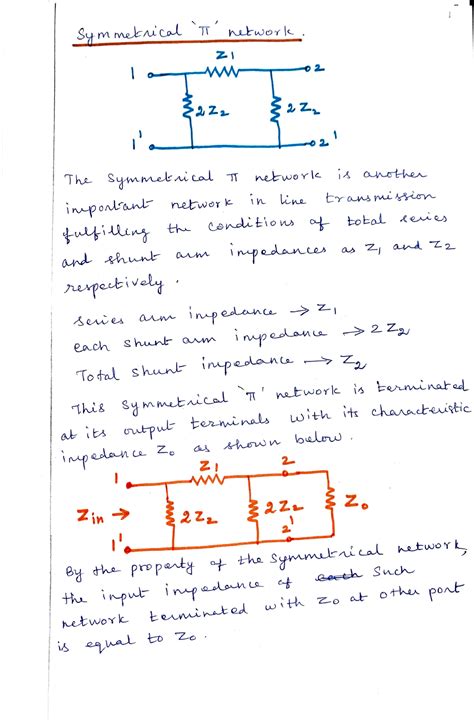 Symmetrical 'π' network.
Z1
1 2
2Z2 2Z2
1' 2'
The Symmetrical π network is another
important network in line transmission
fulfilling the conditions of total series
and shunt arm impedances as Z1 and Z2
respectively.
series arm impedance → Z1
each shunt arm impedance → 2Z2
Total shunt impedance → Z2
This Symmetrical 'π' network is terminated
at its output terminals with its characteristic
impedance Zo as shown below.
Z1 2
1
Zin → 2Z2 2Z2 Zo
1' 2'
By the property of the Symmetrical network,
the input impedance of each Such
network terminated with Zo at other port
is equal to Zo.